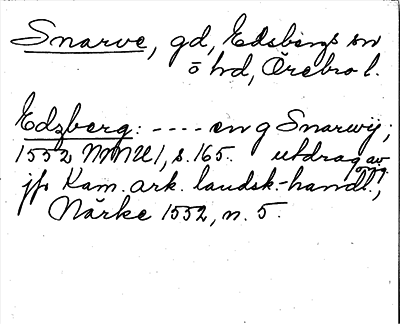 Snarve, gd, Edsbergs sn
ö hd, Örebro l.
Edzberg: ---- en g Snarwij;
1552 NMU 1, s. 165. utdrag av
jfr Kam. ark. landsk.-handl.,
Närke 1552, n. 5.